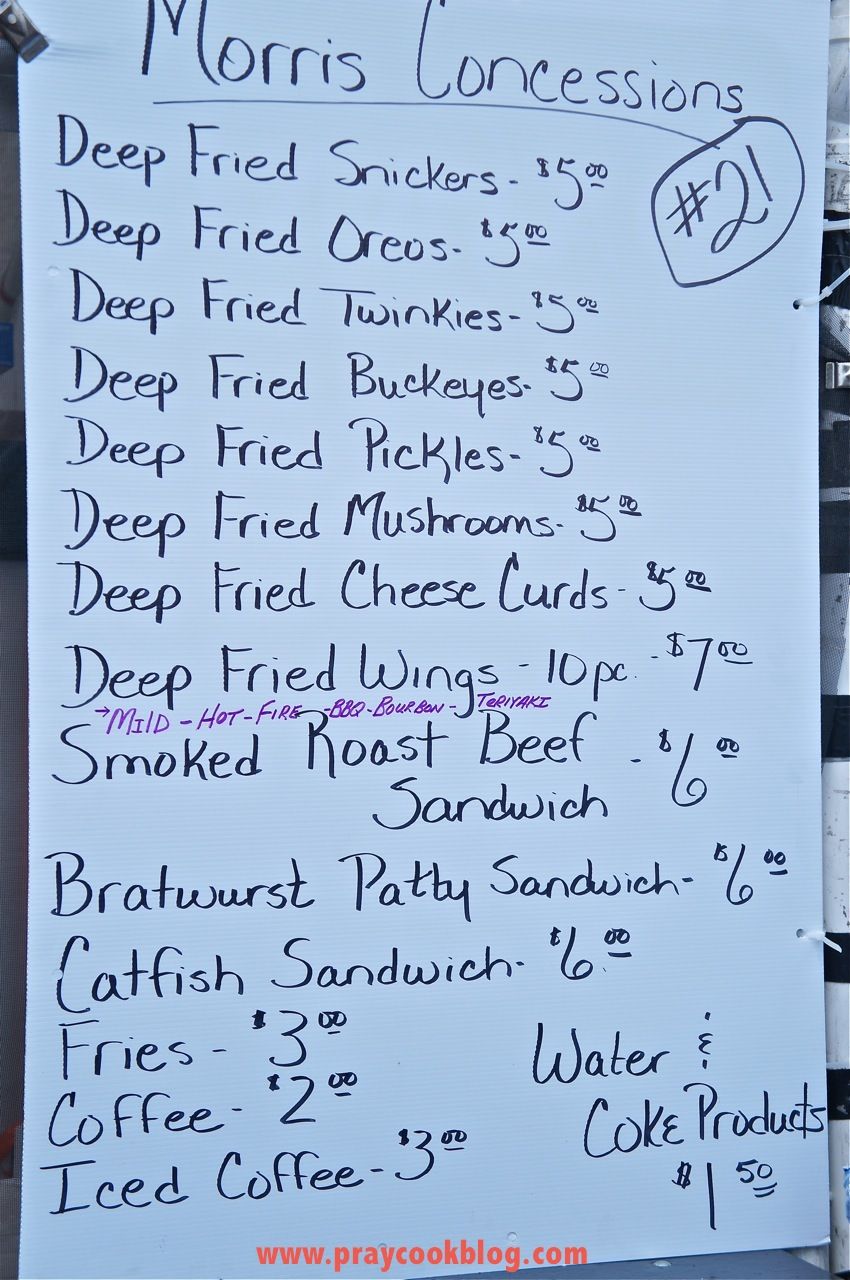 Morris Concessions
#21
Deep Fried Snickers - $5.00
Deep Fried Oreos - $5.00
Deep Fried Twinkies - $5.00
Deep Fried Buckeyes - $5.00
Deep Fried Pickles - $5.00
Deep Fried Mushrooms - $5.00
Deep Fried Cheese Curds - $5.00
Deep Fried Wings - 10 pc. - $7.00
→ Mild - Hot - Fire - BBQ - Bourbon - Teriyaki
Smoked Roast Beef - $6.00
Sandwich
Bratwurst Patty Sandwich - $6.00
Catfish Sandwich - $6.00
Fries - $3.00
Coffee - $2.00
Iced Coffee - $3.00
Water &
Coke Products
$1.50
www.praycookblog.com